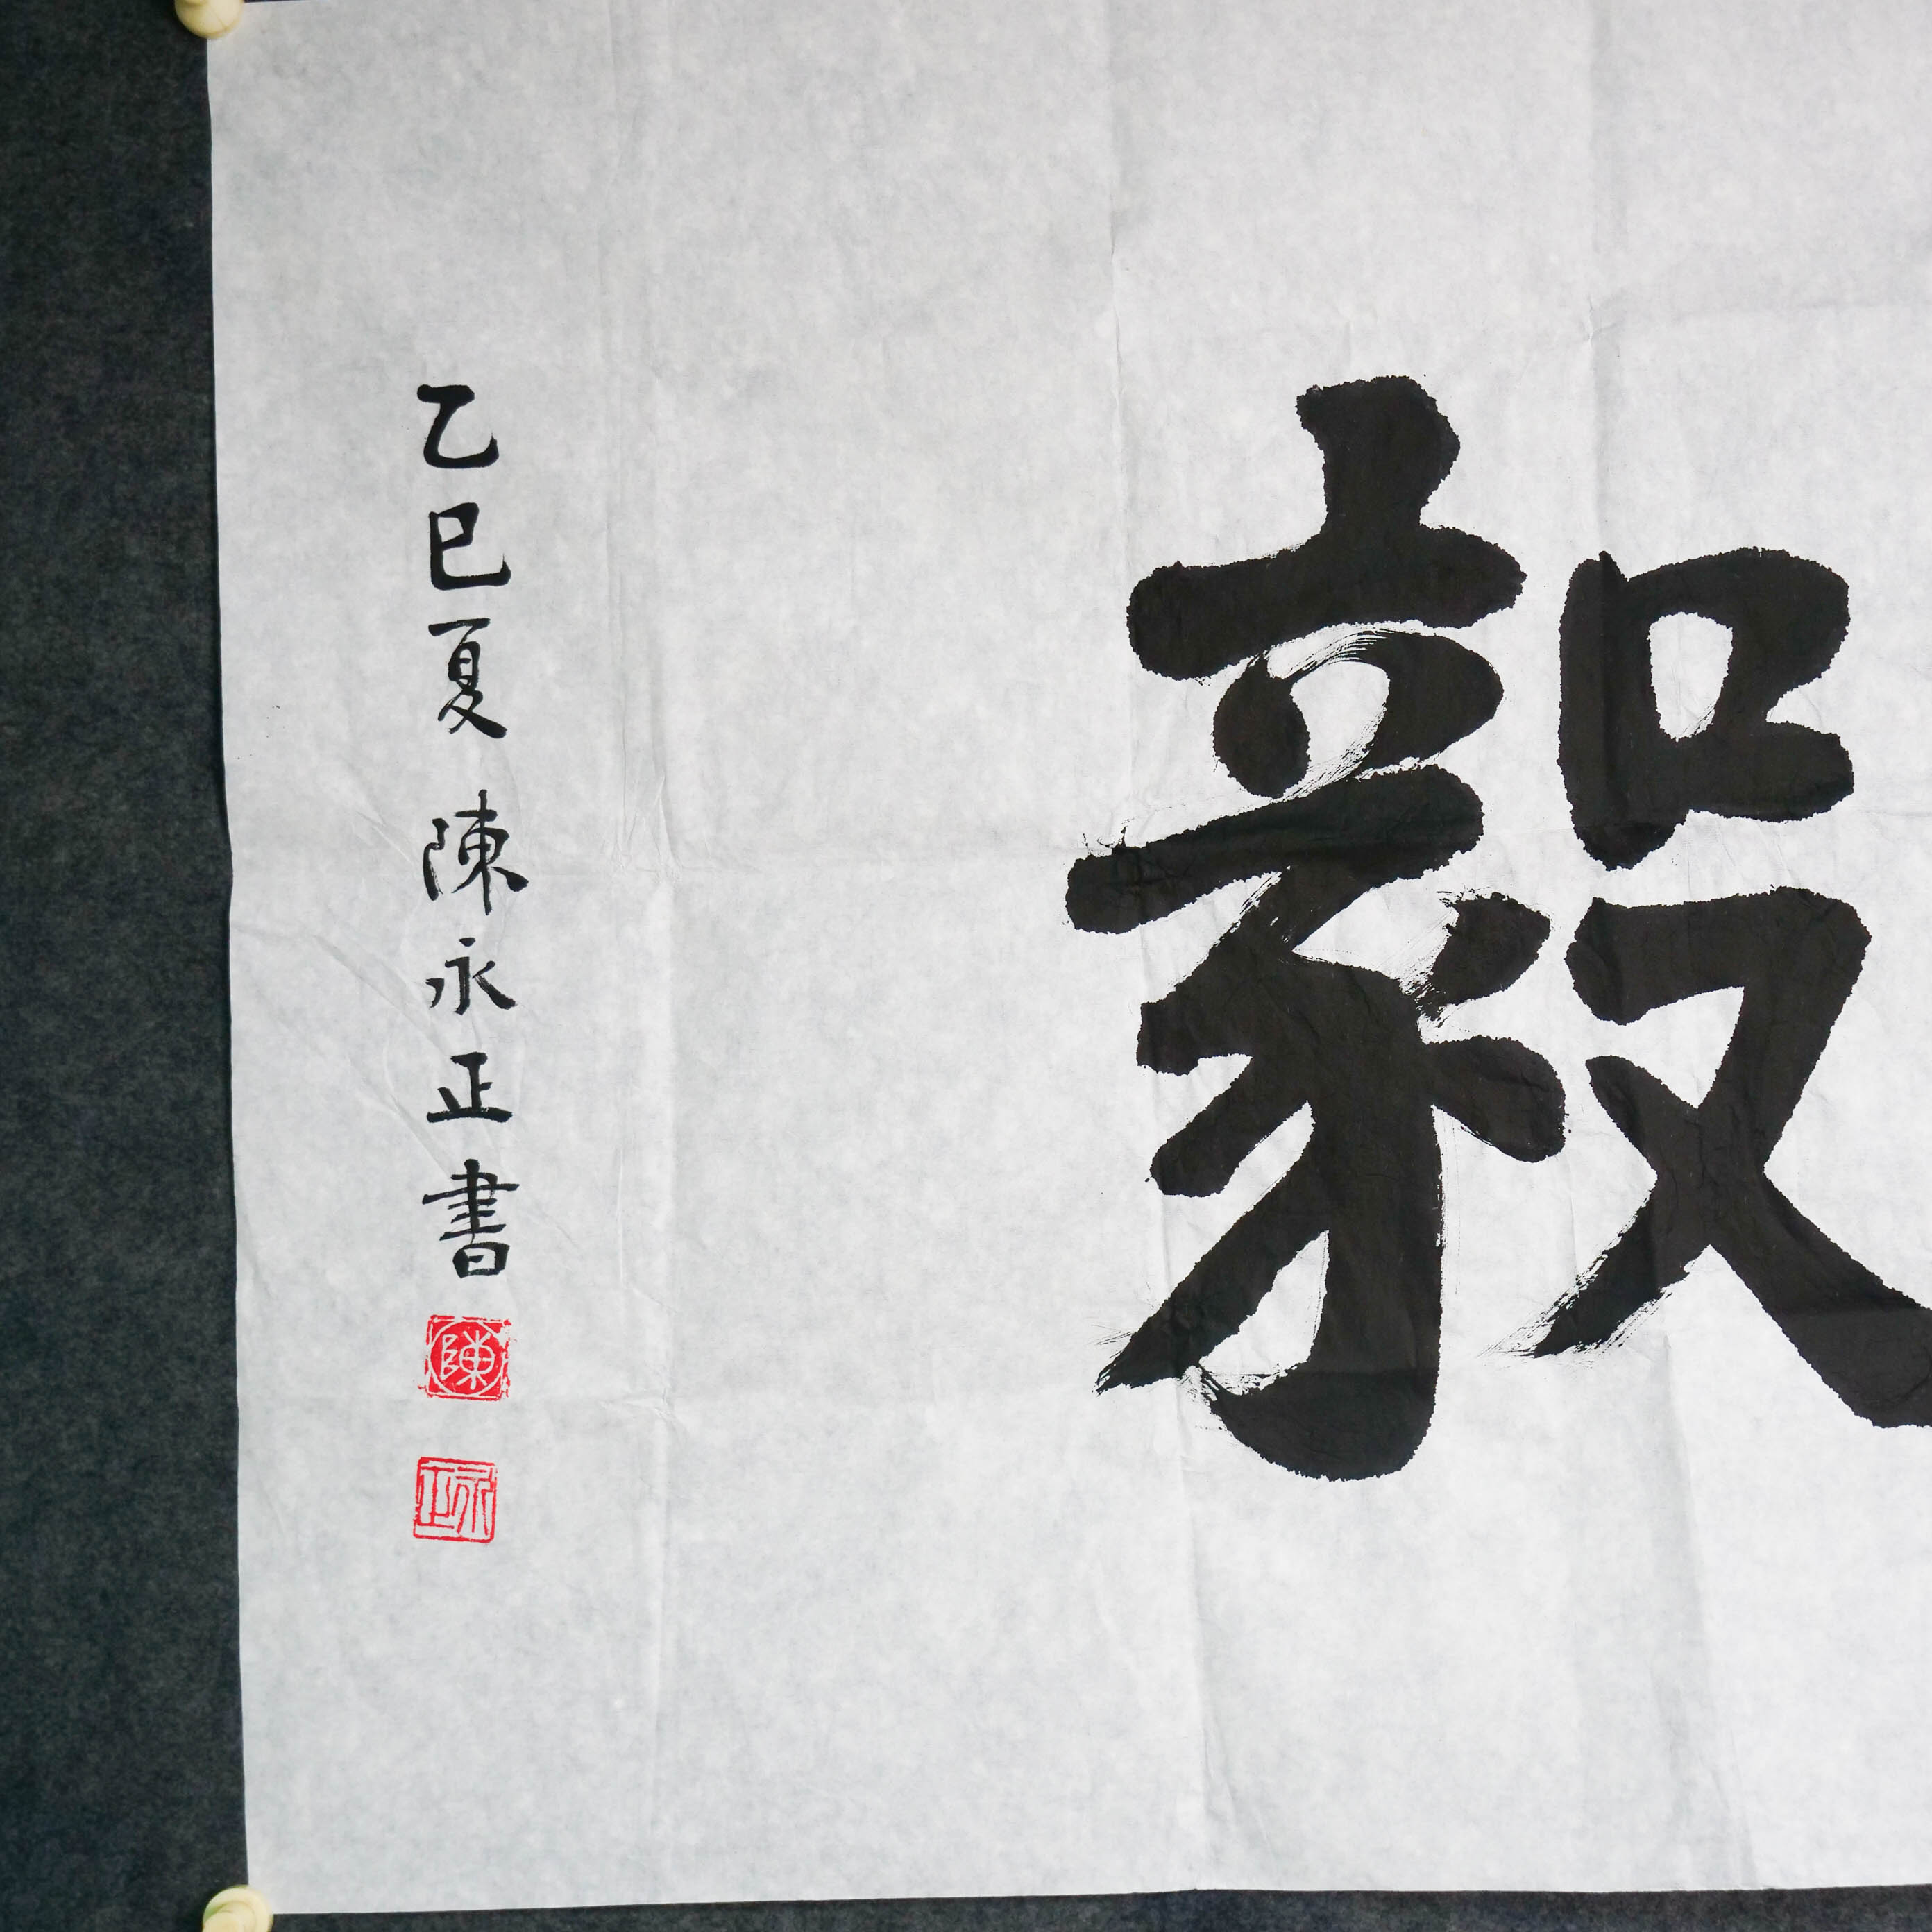 毅
乙巳夏 陳永正書
陳
永正